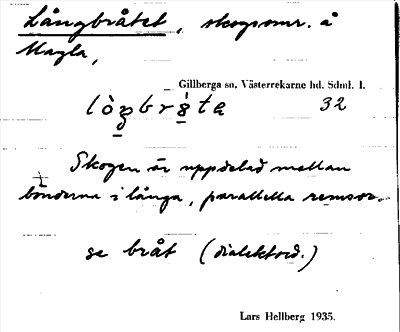 Långbråtet, skogsomr. å
Magla,
Gillberga sn. Västerrekarne hd. Sdml. l.
32
Skogen är uppdelad mellan
bönderna i långa, parallella remsor.
se bråt (dialektord.)
Lars Hellberg 1935.